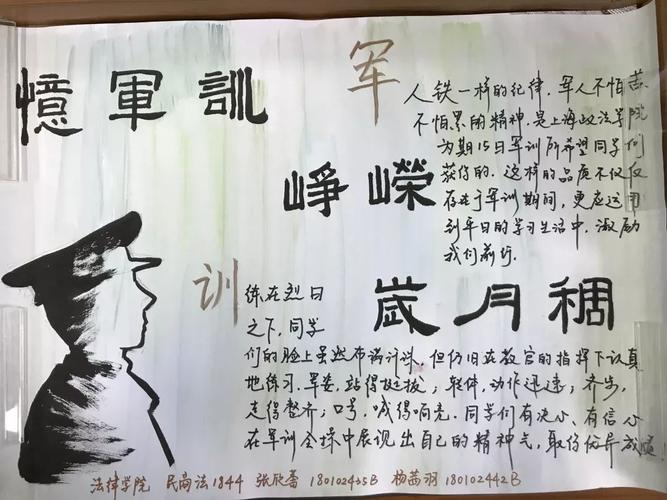 憶軍訓
崢嶸
歲月稠
军
人铁一样的纪律，军人不怕苦
不怕累的精神，是上海政法学院
为期15日军训所希望同学们
获得的。这样的品质不仅仅
存在于军训期间，更应运用
到平日的学习生活中，激励
我们前行。
训
练在烈日
之下，同学
们的脸上虽然布满汗珠，但仍旧在教官的指挥下认真
地练习。军姿，站得挺拔；转体，动作迅速；齐步，
走得整齐；口号，喊得响亮。同学们有决心、有信心
在军训会操中展现出自己的精神气，取得优异成绩
法律学院 民商法1844 张欣蕾 180102435B 杨茜羽 180102442B